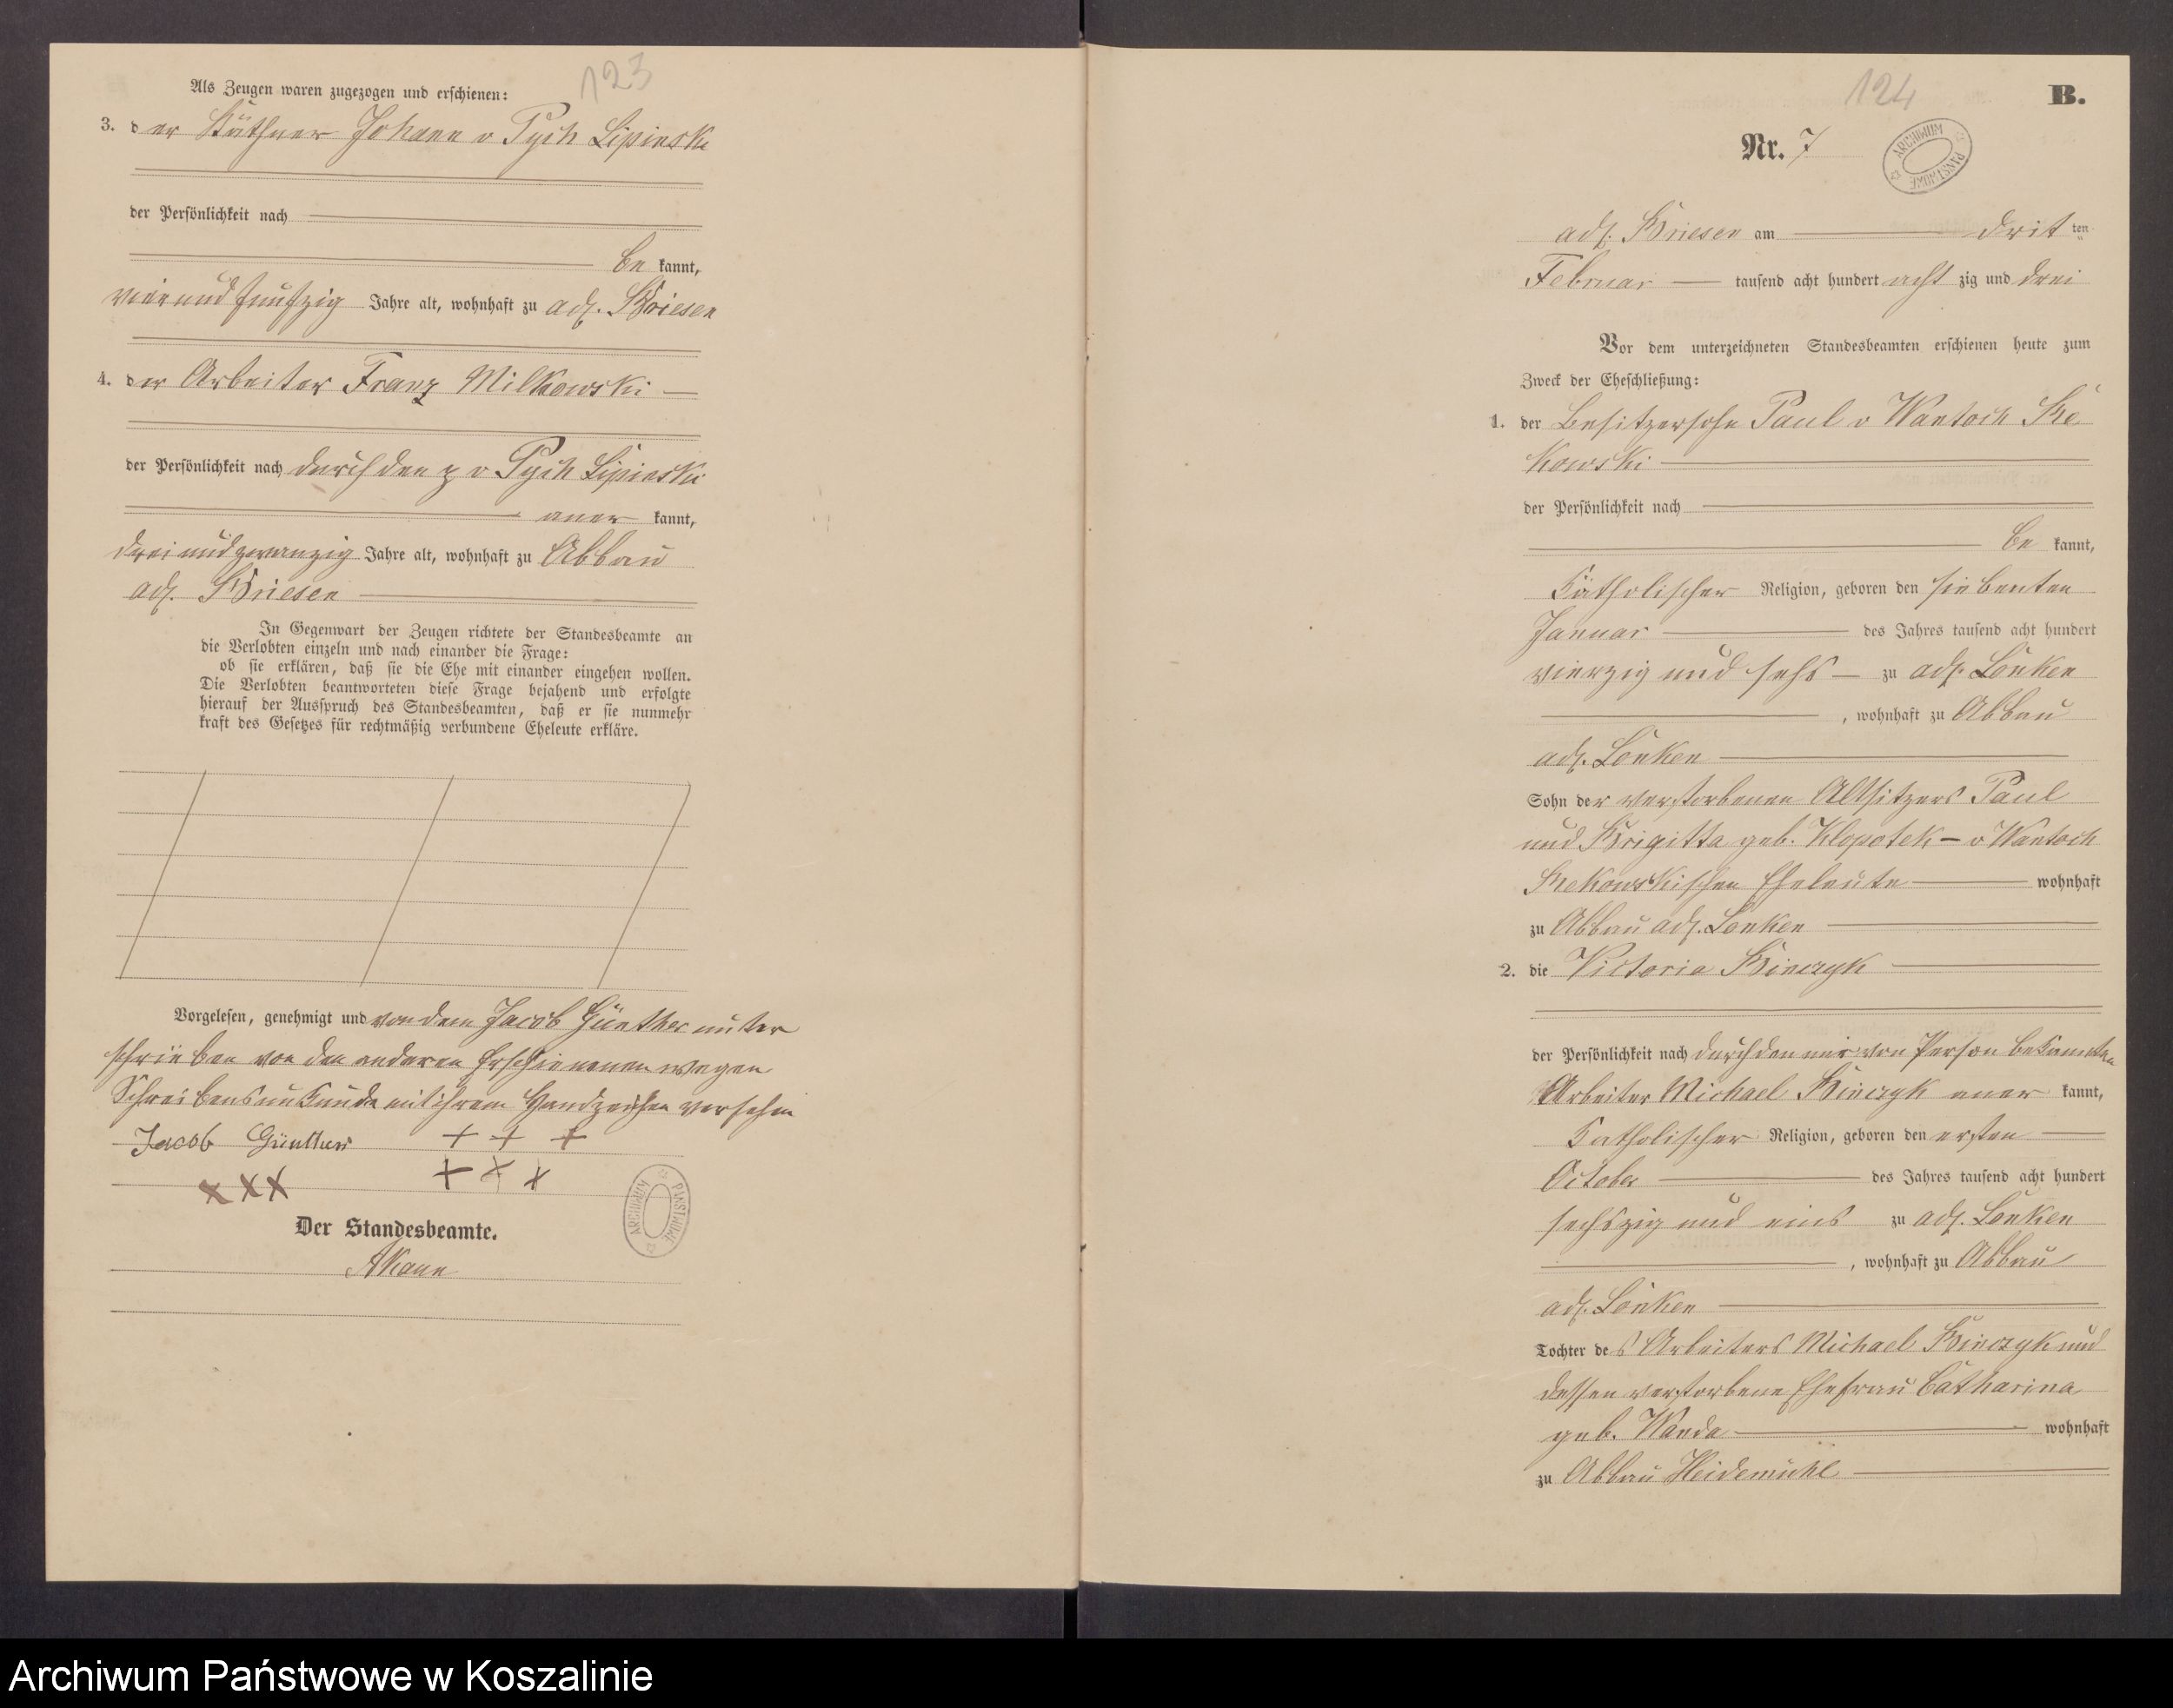 123
Als Zeugen waren zugezogen und erschienen:
3. der Käthner Johann v Pych Lipinski
der Persönlichkeit nach
be kannt,
vierundfünfzig Jahre alt, wohnhaft zu adl. Briesen
4. der Arbeiter Franz Milkowski
der Persönlichkeit nach durch den p v Pych Lipinski
aner kannt,
dreiundzwanzig Jahre alt, wohnhaft zu Abbau
adl. Briesen
In Gegenwart der Zeugen richtete der Standesbeamte an
die Verlobten einzeln und nach einander die Frage:
ob sie erklären, daß sie die Ehe mit einander eingehen wollen.
Die Verlobten beantworteten diese Frage bejahend und erfolgte
hierauf der Ausspruch des Standesbeamten, daß er sie nunmehr
kraft des Gesetzes für rechtmäßig verbundene Eheleute erkläre.
Vorgelesen, genehmigt und von dem Jacob Günther unter
schrieben von den anderen Erschienenen wegen
Schreibensunkunde mit ihrem Handzeichen versehen
Jacob Günther + + +
x x x + x x
ARCHIWUM PAŃSTWOWE
Der Standesbeamte.
124
B.
Nr. 7
ARCHIWUM PAŃSTWOWE
adl. Briesen am drit ten
Februar tausend acht hundert acht zig und drei
Vor dem unterzeichneten Standesbeamten erschienen heute zum
Zweck der Eheschließung:
1. der Besitzersohn Paul v Wantoch Re
kowski
der Persönlichkeit nach
be kannt,
Katholischer Religion, geboren den siebenten
Januar des Jahres tausend acht hundert
vierzig und sechs zu adl. Lonken
, wohnhaft zu Abbau
adl. Lonken
Sohn der verstorbenen Altsitzers Paul
und Brigitta geb. Klopotek - v Wantoch
Rekowskischen Eheleute wohnhaft
zu Abbau adl. Lonken
2. die Victoria Binczyk
der Persönlichkeit nach durch den mir von Person bekannten
Arbeiter Michael Binczyk aner kannt,
Katholischer Religion, geboren den ersten
October des Jahres tausend acht hundert
sechszig und eins zu adl. Lonken
, wohnhaft zu Abbau
adl. Lonken
Tochter des Arbeiters Michael Binczyk und
dessen verstorbene Ehefrau Catharina
geb. Wanda wohnhaft
zu Abbau Heidemühl
Archiwum Państwowe w Koszalinie